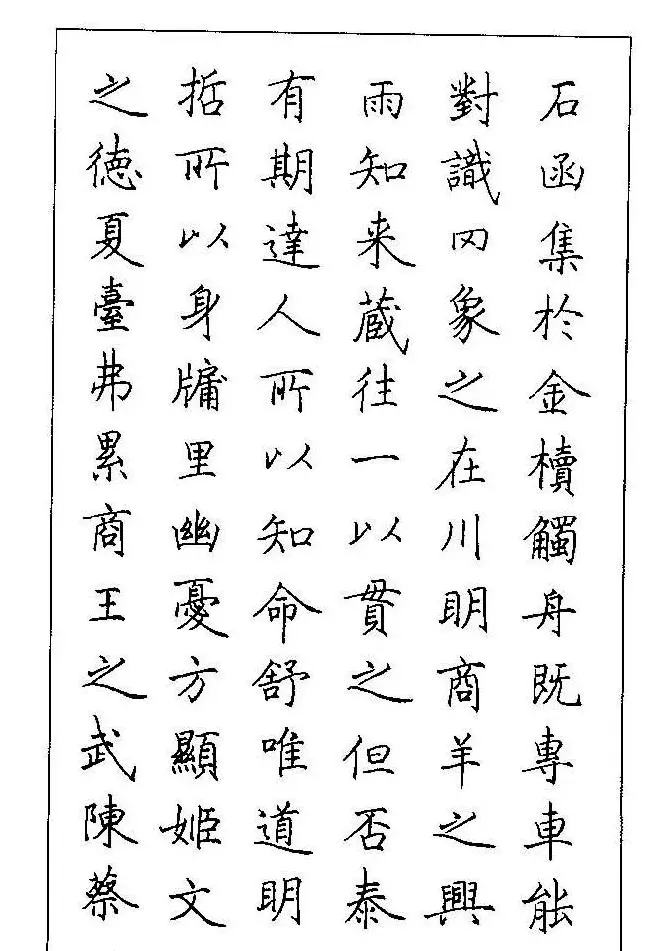 石函集於金櫝觸舟既專車能
對識罔象之在川明商羊之興
雨知来蔵往一以貫之但否泰
有期達人所以知命舒唯道明
括所以身牗里幽憂方顯姬文
之德夏臺弗累商王之武陳蔡